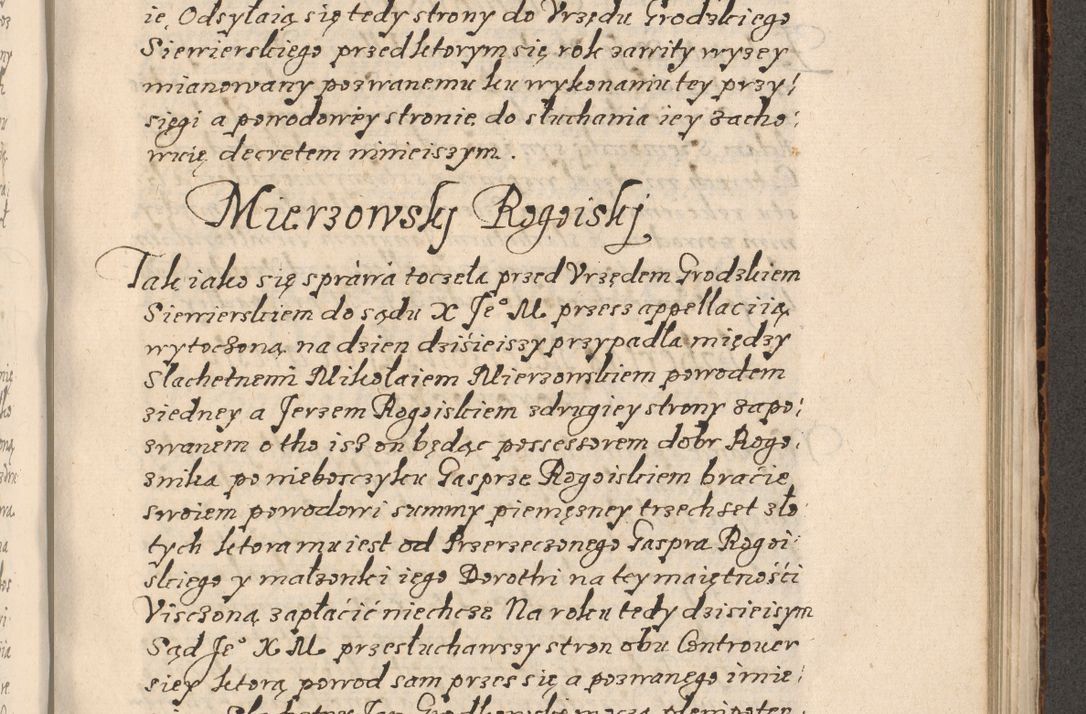 ię, Odsyłaią się tedy strony do Vrzędu Grodzkiego
Siewierskiego przed ktorym się rok zawity wyzey
mianowany pozwanemu ku wykonaniu tey przy:
sięgi a powodowey stronie do słuchania iey zacho:
wuię decretem ninieiszym.
Mierzowskj Rogoiskj
Tak iako się sprawa toczeła przed Vrzędem Grodzkiem
Siewierskiem do sądu X Je° M. przess appellaciią
wytoczoną na dzien dzisieiszy przypadła między
Slachetnemi Mikołaiem Mierzowskiem powodem
ziedney a Jerzem Rogoiskiem zdrugiey strony zapo:
zwanem o tho isz on będąc possessorem dobr Rogo:
znika po nieboszczyku Gasprze Rogoiskiem bracie
swoiem powodowi summy pienięzney trzechset zło
tych ktora mu iest od Przerzeczonego Gaspra Rogoi:
skiego y małzonki iego Dorothi na tey maiętności
Visczoną zapłacić niechcze Na roku tedy dzisieisym
Sąd Je° X M. przesłuchawszy stron obu Controuer
siey ktorą powod sam przes się a pozwanego imie: